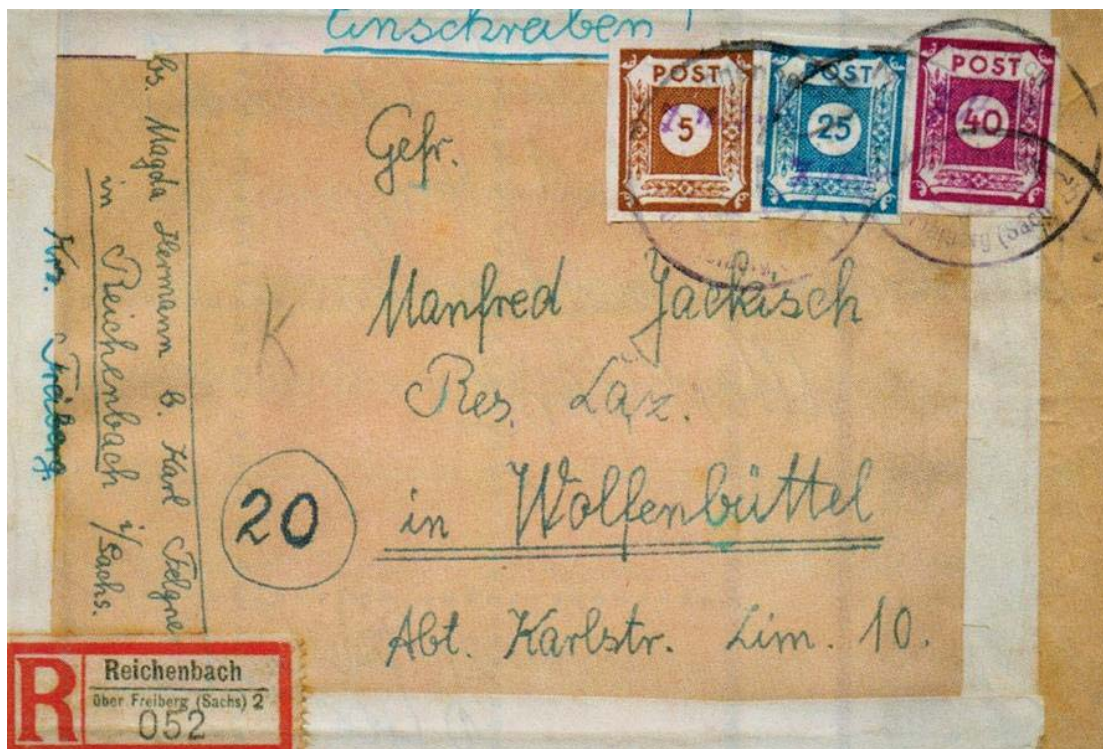 Einschreiben!
POST
5
POST
25
POST
40
Gefr.
Manfred Jackisch
Res. Laz.
in Wolfenbüttel
Abt. Karlstr. Zim. 10.
K
20
Magda Hermann b. Karl Felgne
in Reichenbach i/Sachs.
Krs. Freiberg
R
Reichenbach
über Freiberg (Sachs) 2
052